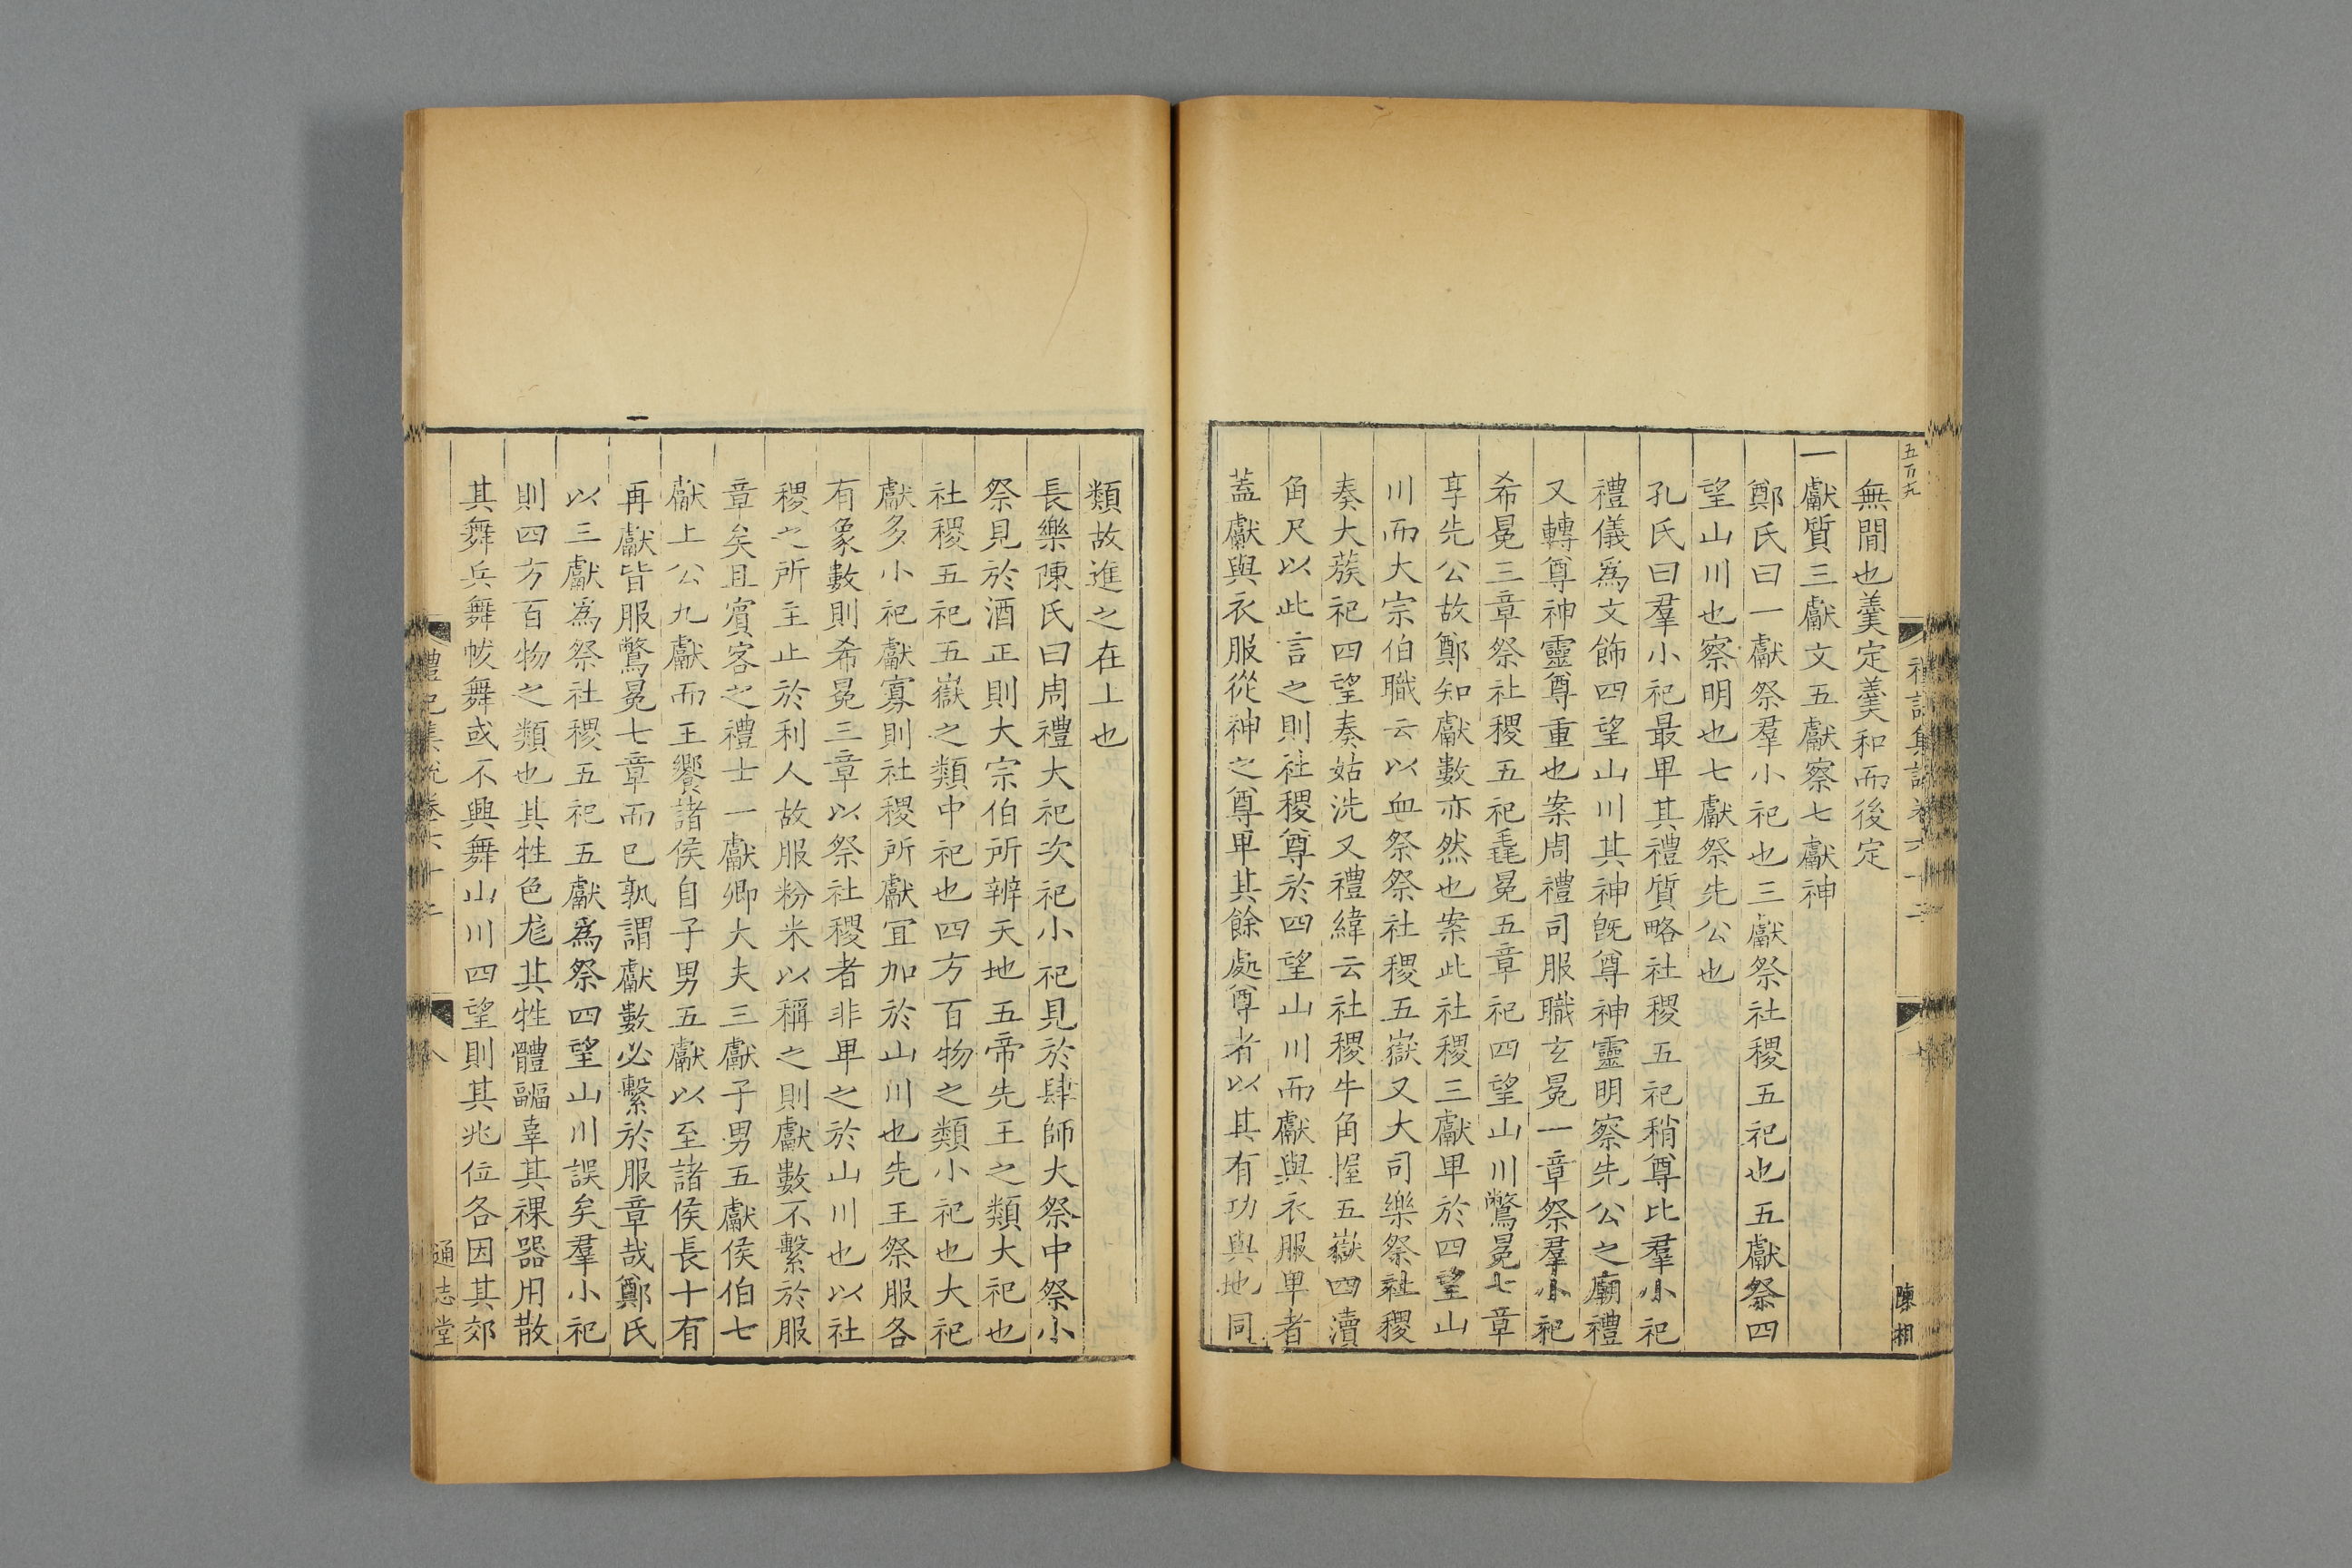 無閒也羹定羹和而後定
一獻質三獻文五獻察七獻神
鄭氏曰一獻祭羣小祀也三獻祭社稷五祀也五獻祭四
望山川也察明也七獻祭先公也
孔氏曰羣小祀最卑其禮質略社稷五祀稍尊比羣小祀
禮儀爲文飾四望山川其神旣尊神靈明察先公之廟禮
又轉尊神靈尊重也案周禮司服職玄冕一章祭羣小祀
希冕三章祭社稷五祀毳冕五章祀四望山川鷩冕七章
享先公故鄭知獻數亦然也案此社稷三獻卑於四望山
川而大宗伯職云以血祭祭社稷五嶽又大司樂祭社稷
奏大蔟祀四望奏姑洗又禮緯云社稷牛角握五嶽四瀆
角尺以此言之則社稷尊於四望山川而獻與衣服卑者
蓋獻與衣服從神之尊卑其餘處尊者以其有功與地同
陳相
類故進之在上也
長樂陳氏曰周禮大祀次祀小祀見於肆師大祭中祭小
祭見於酒正則大宗伯所辨天地五帝先王之類大祀也
社稷五祀五嶽之類中祀也四方百物之類小祀也大祀
獻多小祀獻寡則社稷所獻宜加於山川也先王祭服各
有象數則希冕三章以祭社稷者非卑之於山川也以社
稷之所主止於利人故服粉米以稱之則獻數不繫於服
章矣且賓客之禮士一獻卿大夫三獻子男五獻侯伯七
獻上公九獻而王饗諸侯自子男五獻以至諸侯長十有
再獻皆服鷩冕七章而已孰謂獻數必繫於服章哉鄭氏
以三獻爲祭社稷五祀五獻爲祭四望山川誤矣羣小祀
則四方百物之類也其牲色尨其牲體疈辜其祼器用散
其舞兵舞帗舞或不興舞山川四望則其兆位各因其郊
禮記集說卷六十二
八
通志堂